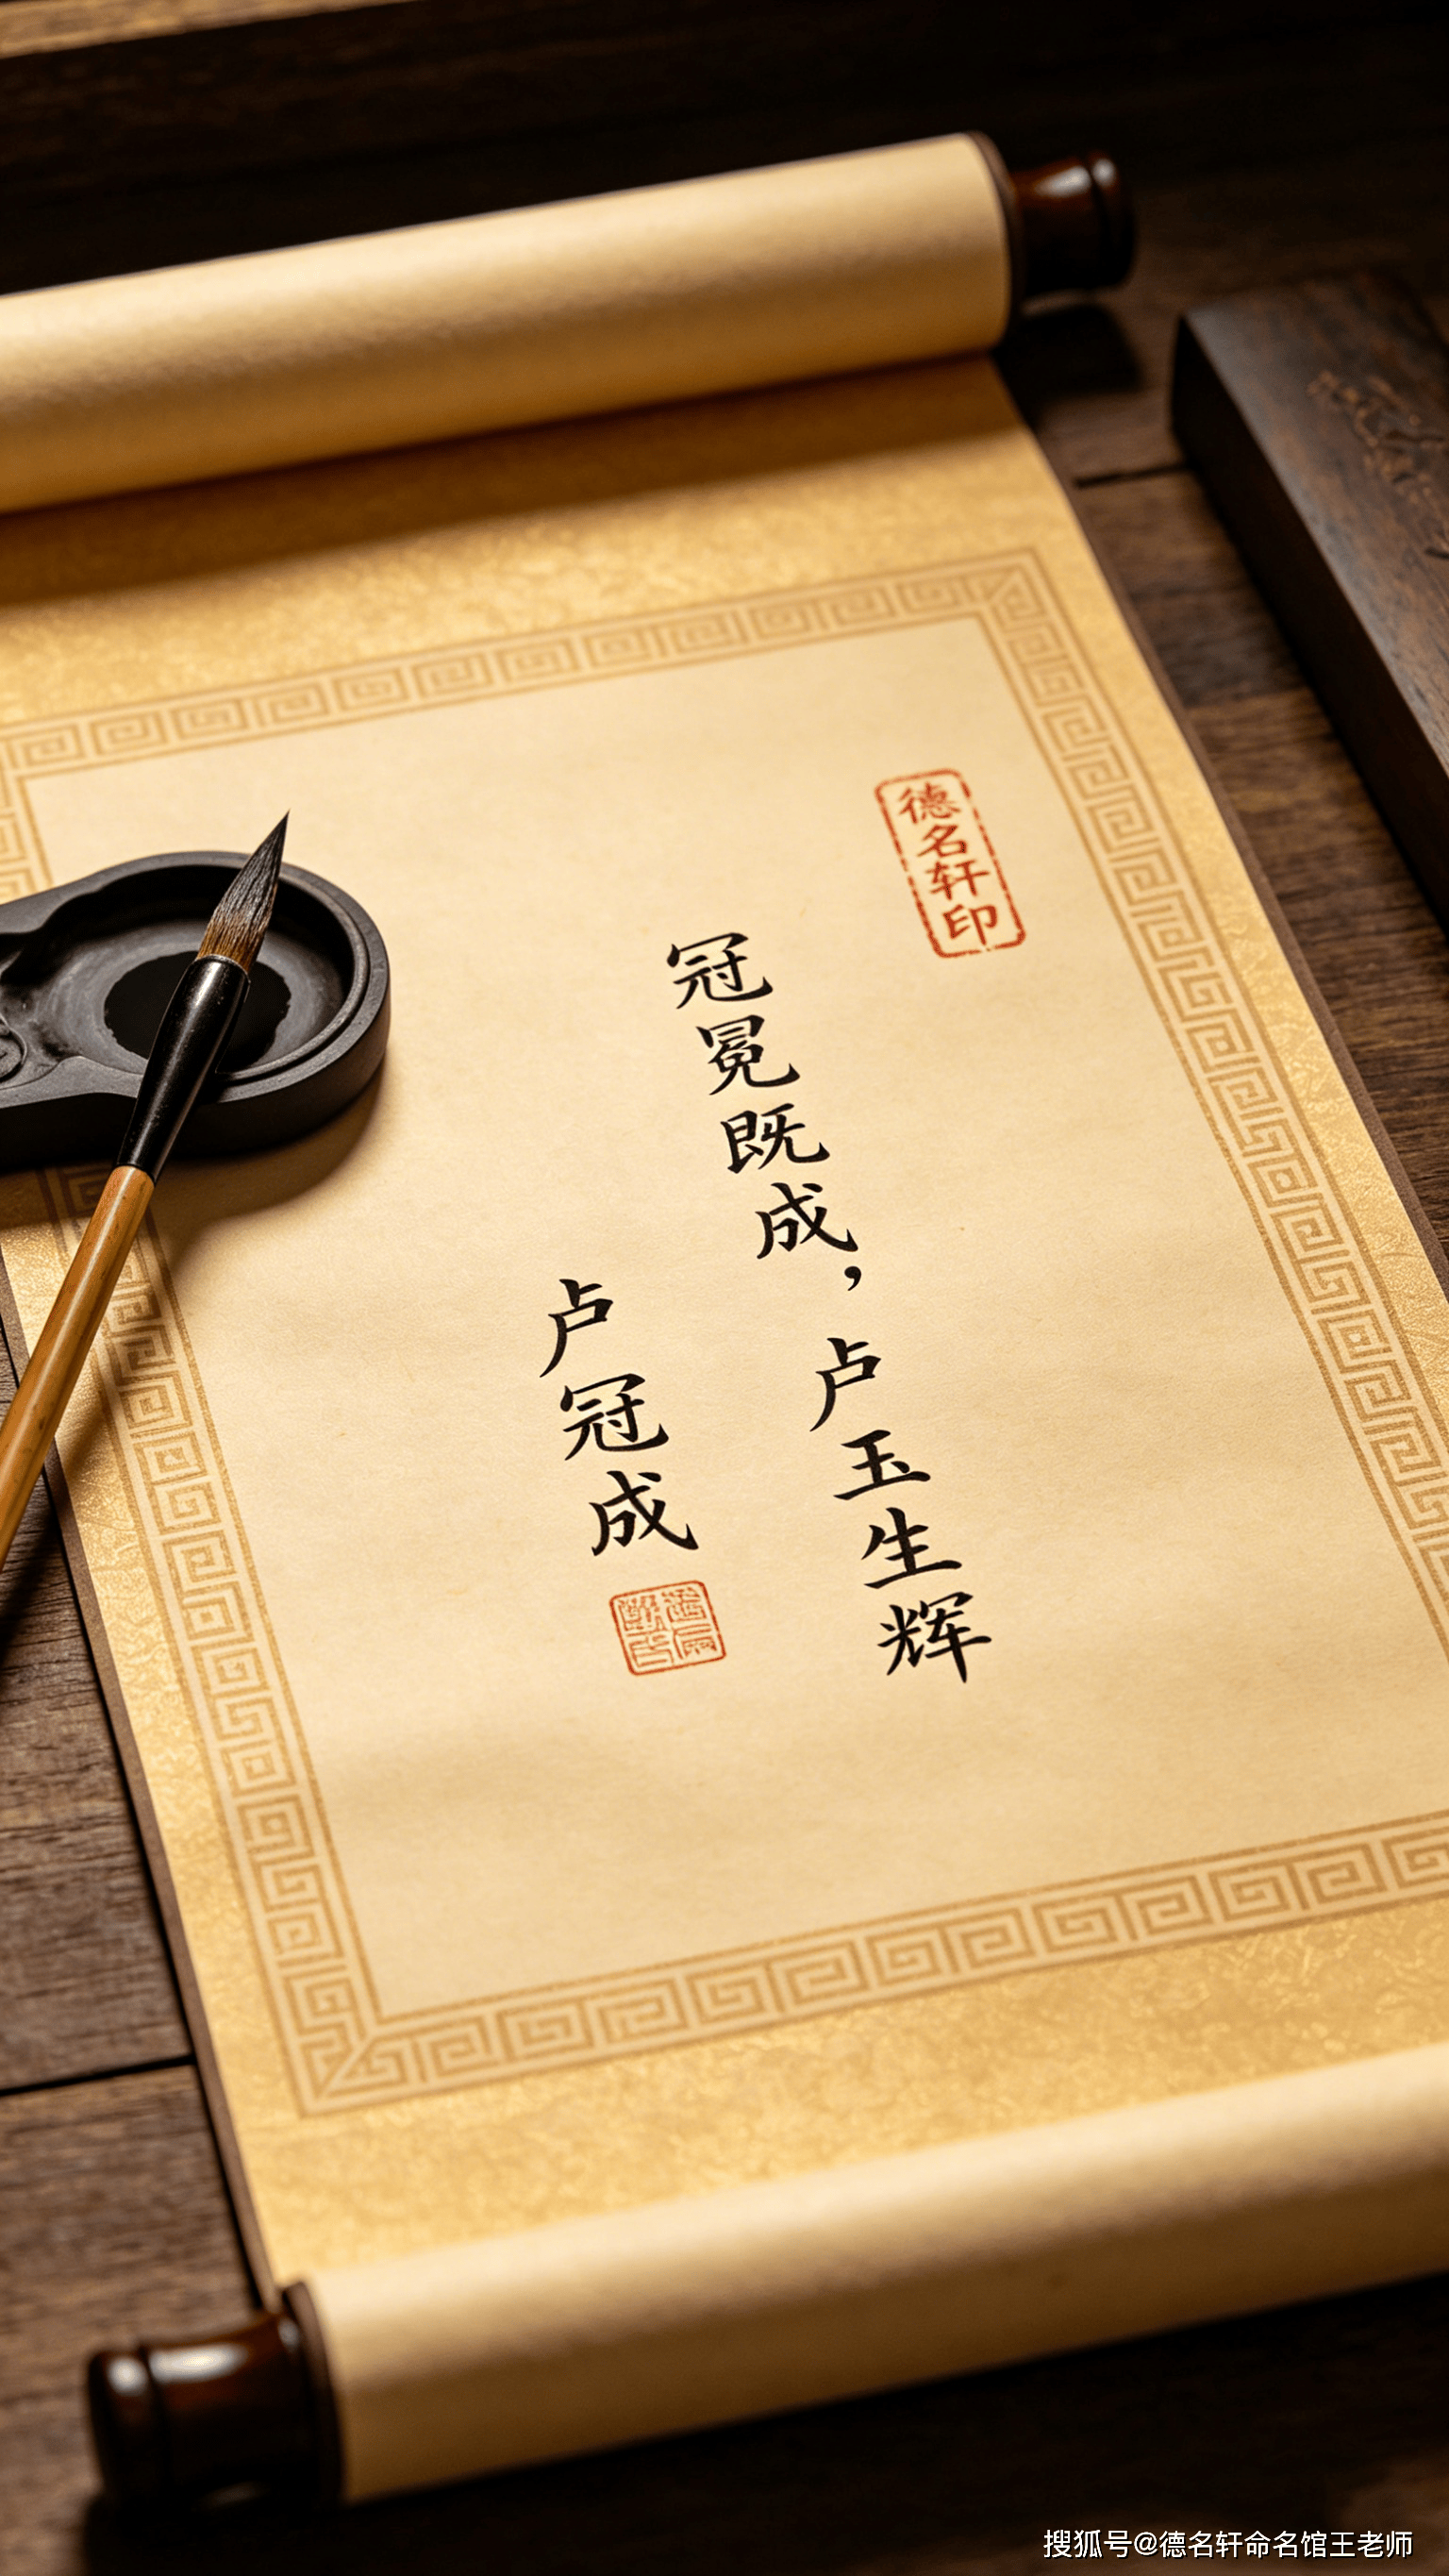 德名轩印
冠冕既成，卢玉生辉
卢冠成
搜狐号@德名轩命名馆王老师